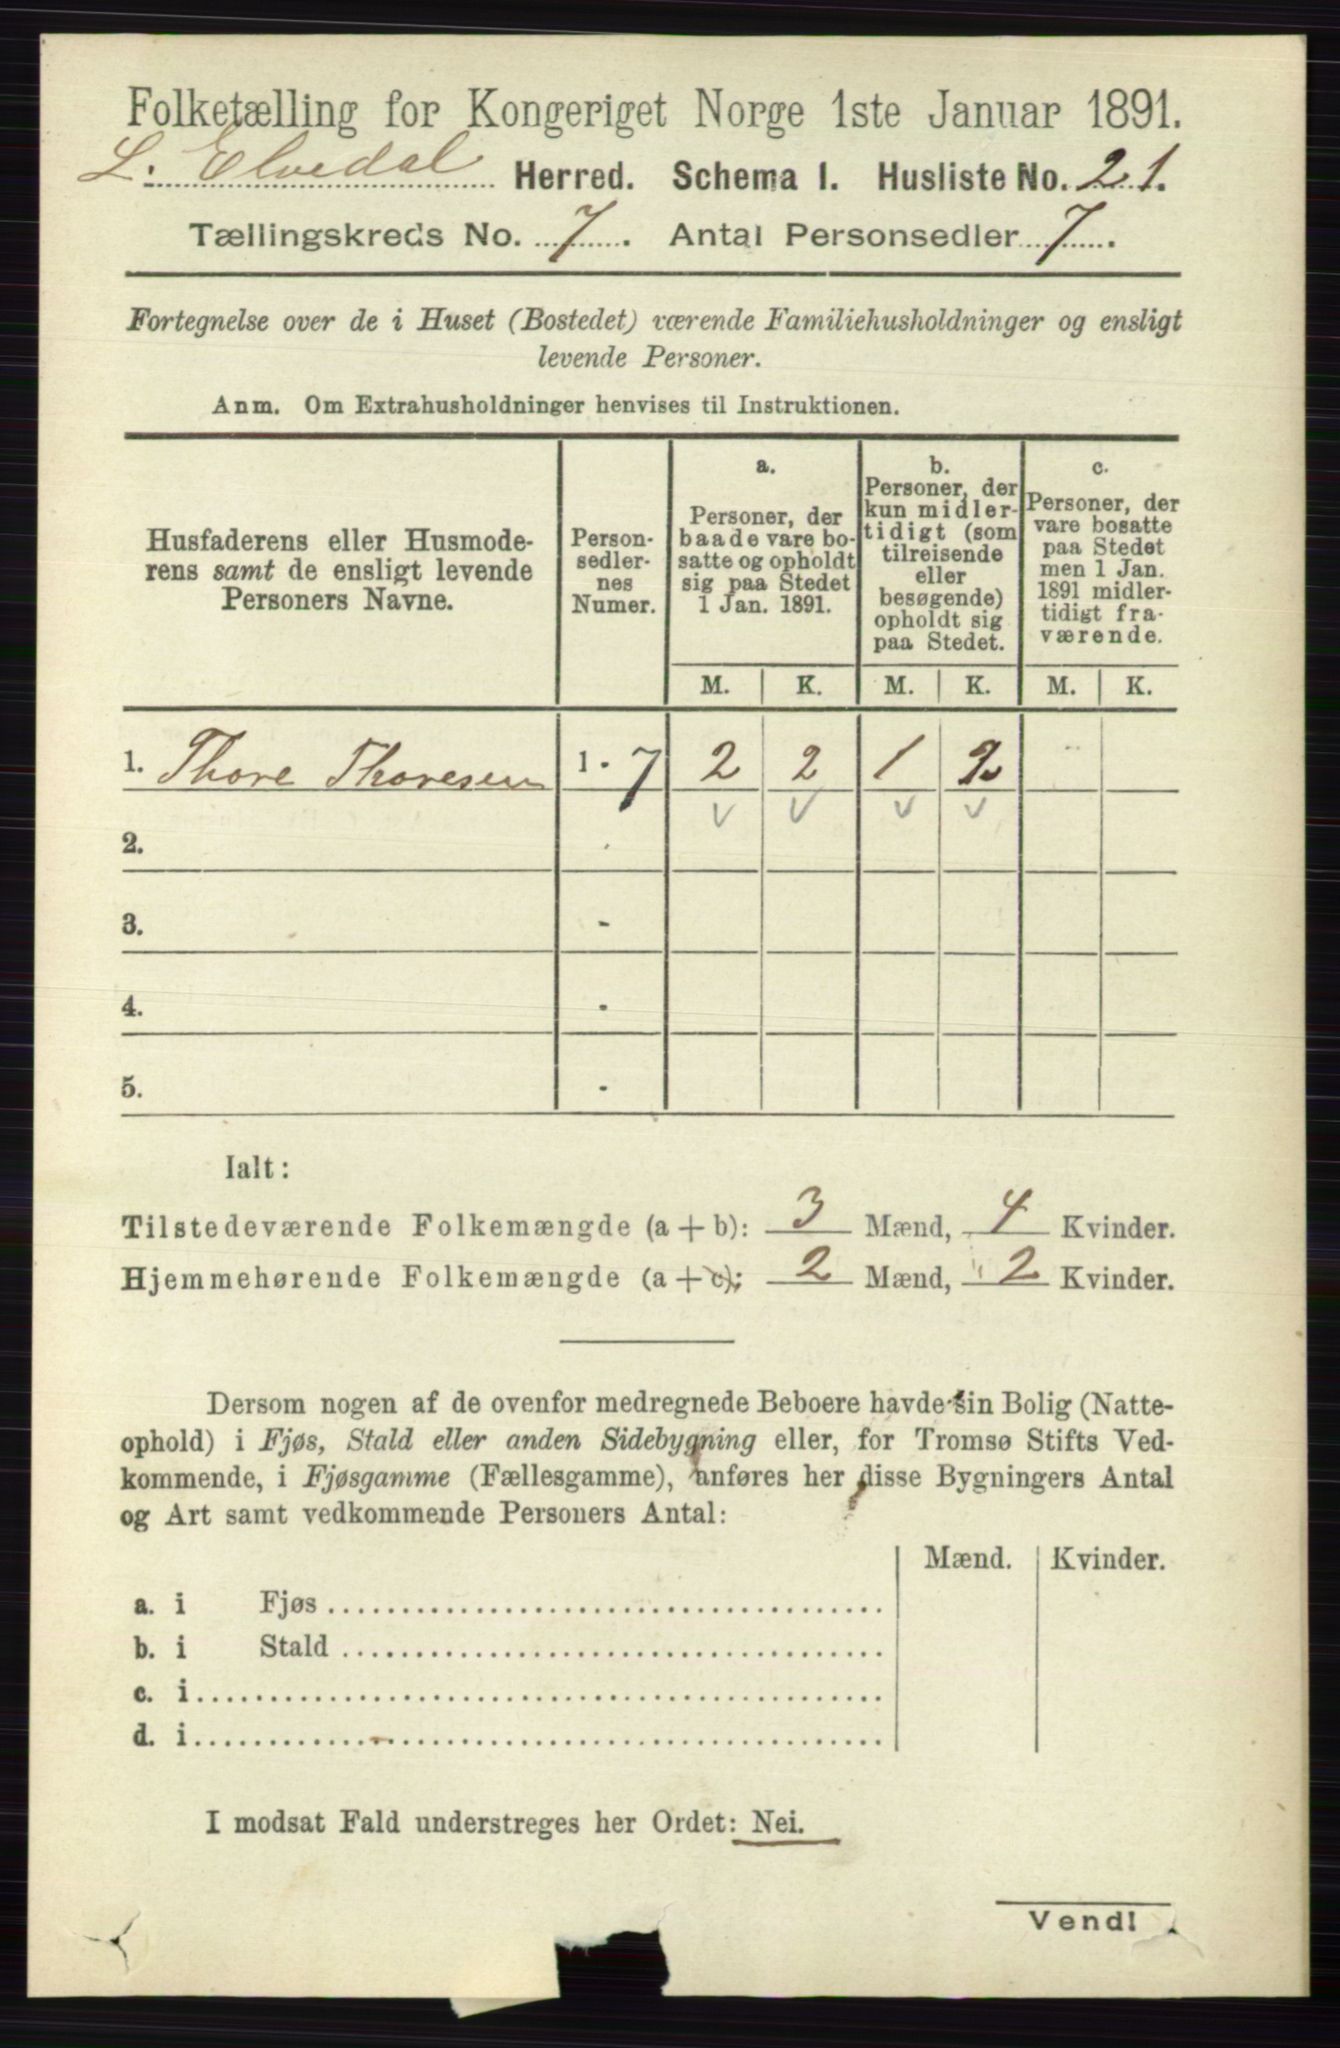 Folketælling for Kongeriget Norge 1ste Januar 1891.
L. Elvedal Herred. Schema I. Husliste No. 21.
Tællingskreds No. 7. Antal Personsedler 7.
Fortegnelse over de i Huset (Bostedet) værende Familiehusholdninger og ensligt
levende Personer.
Anm. Om Extrahusholdninger henvises til Instruktionen.
Husfaderens eller Husmode-
rens samt de ensligt levende
Personers Navne.
Person-
sedler-
nes
Numer.
a.
Personer, der
baade vare bo-
satte og opholdt
sig paa Stedet
1 Jan. 1891.
b.
Personer, der
kun midler-
tidigt (som
tilreisende
eller
besøgende)
opholdt sig
paa Stedet.
c.
Personer, der
vare bosatte
paa Stedet
men 1 Jan.
1891 midler-
tidigt fra-
værende.
M. K. M. K. M. K.
1. Thore Thoresen 1 - 7 2 2 1 2
2.
3. -
4. -
5. -
Ialt:
Tilstedeværende Folkemængde (a + b): 3 Mænd, 4 Kvinder.
Hjemmehørende Folkemængde (a + c): 2 Mænd, 2 Kvinder.
Dersom nogen af de ovenfor medregnede Beboere havde sin Bolig (Natte-
ophold) i Fjøs, Stald eller anden Sidebygning eller, for Tromsø Stifts Ved-
kommende, i Fjøsgamme (Fællesgamme), anføres her disse Bygningers Antal
og Art samt vedkommende Personers Antal:
Mænd. Kvinder.
a. i Fjøs
b. i Stald
c. i
d. i
I modsat Fald understreges her Ordet: Nei.
Vend!